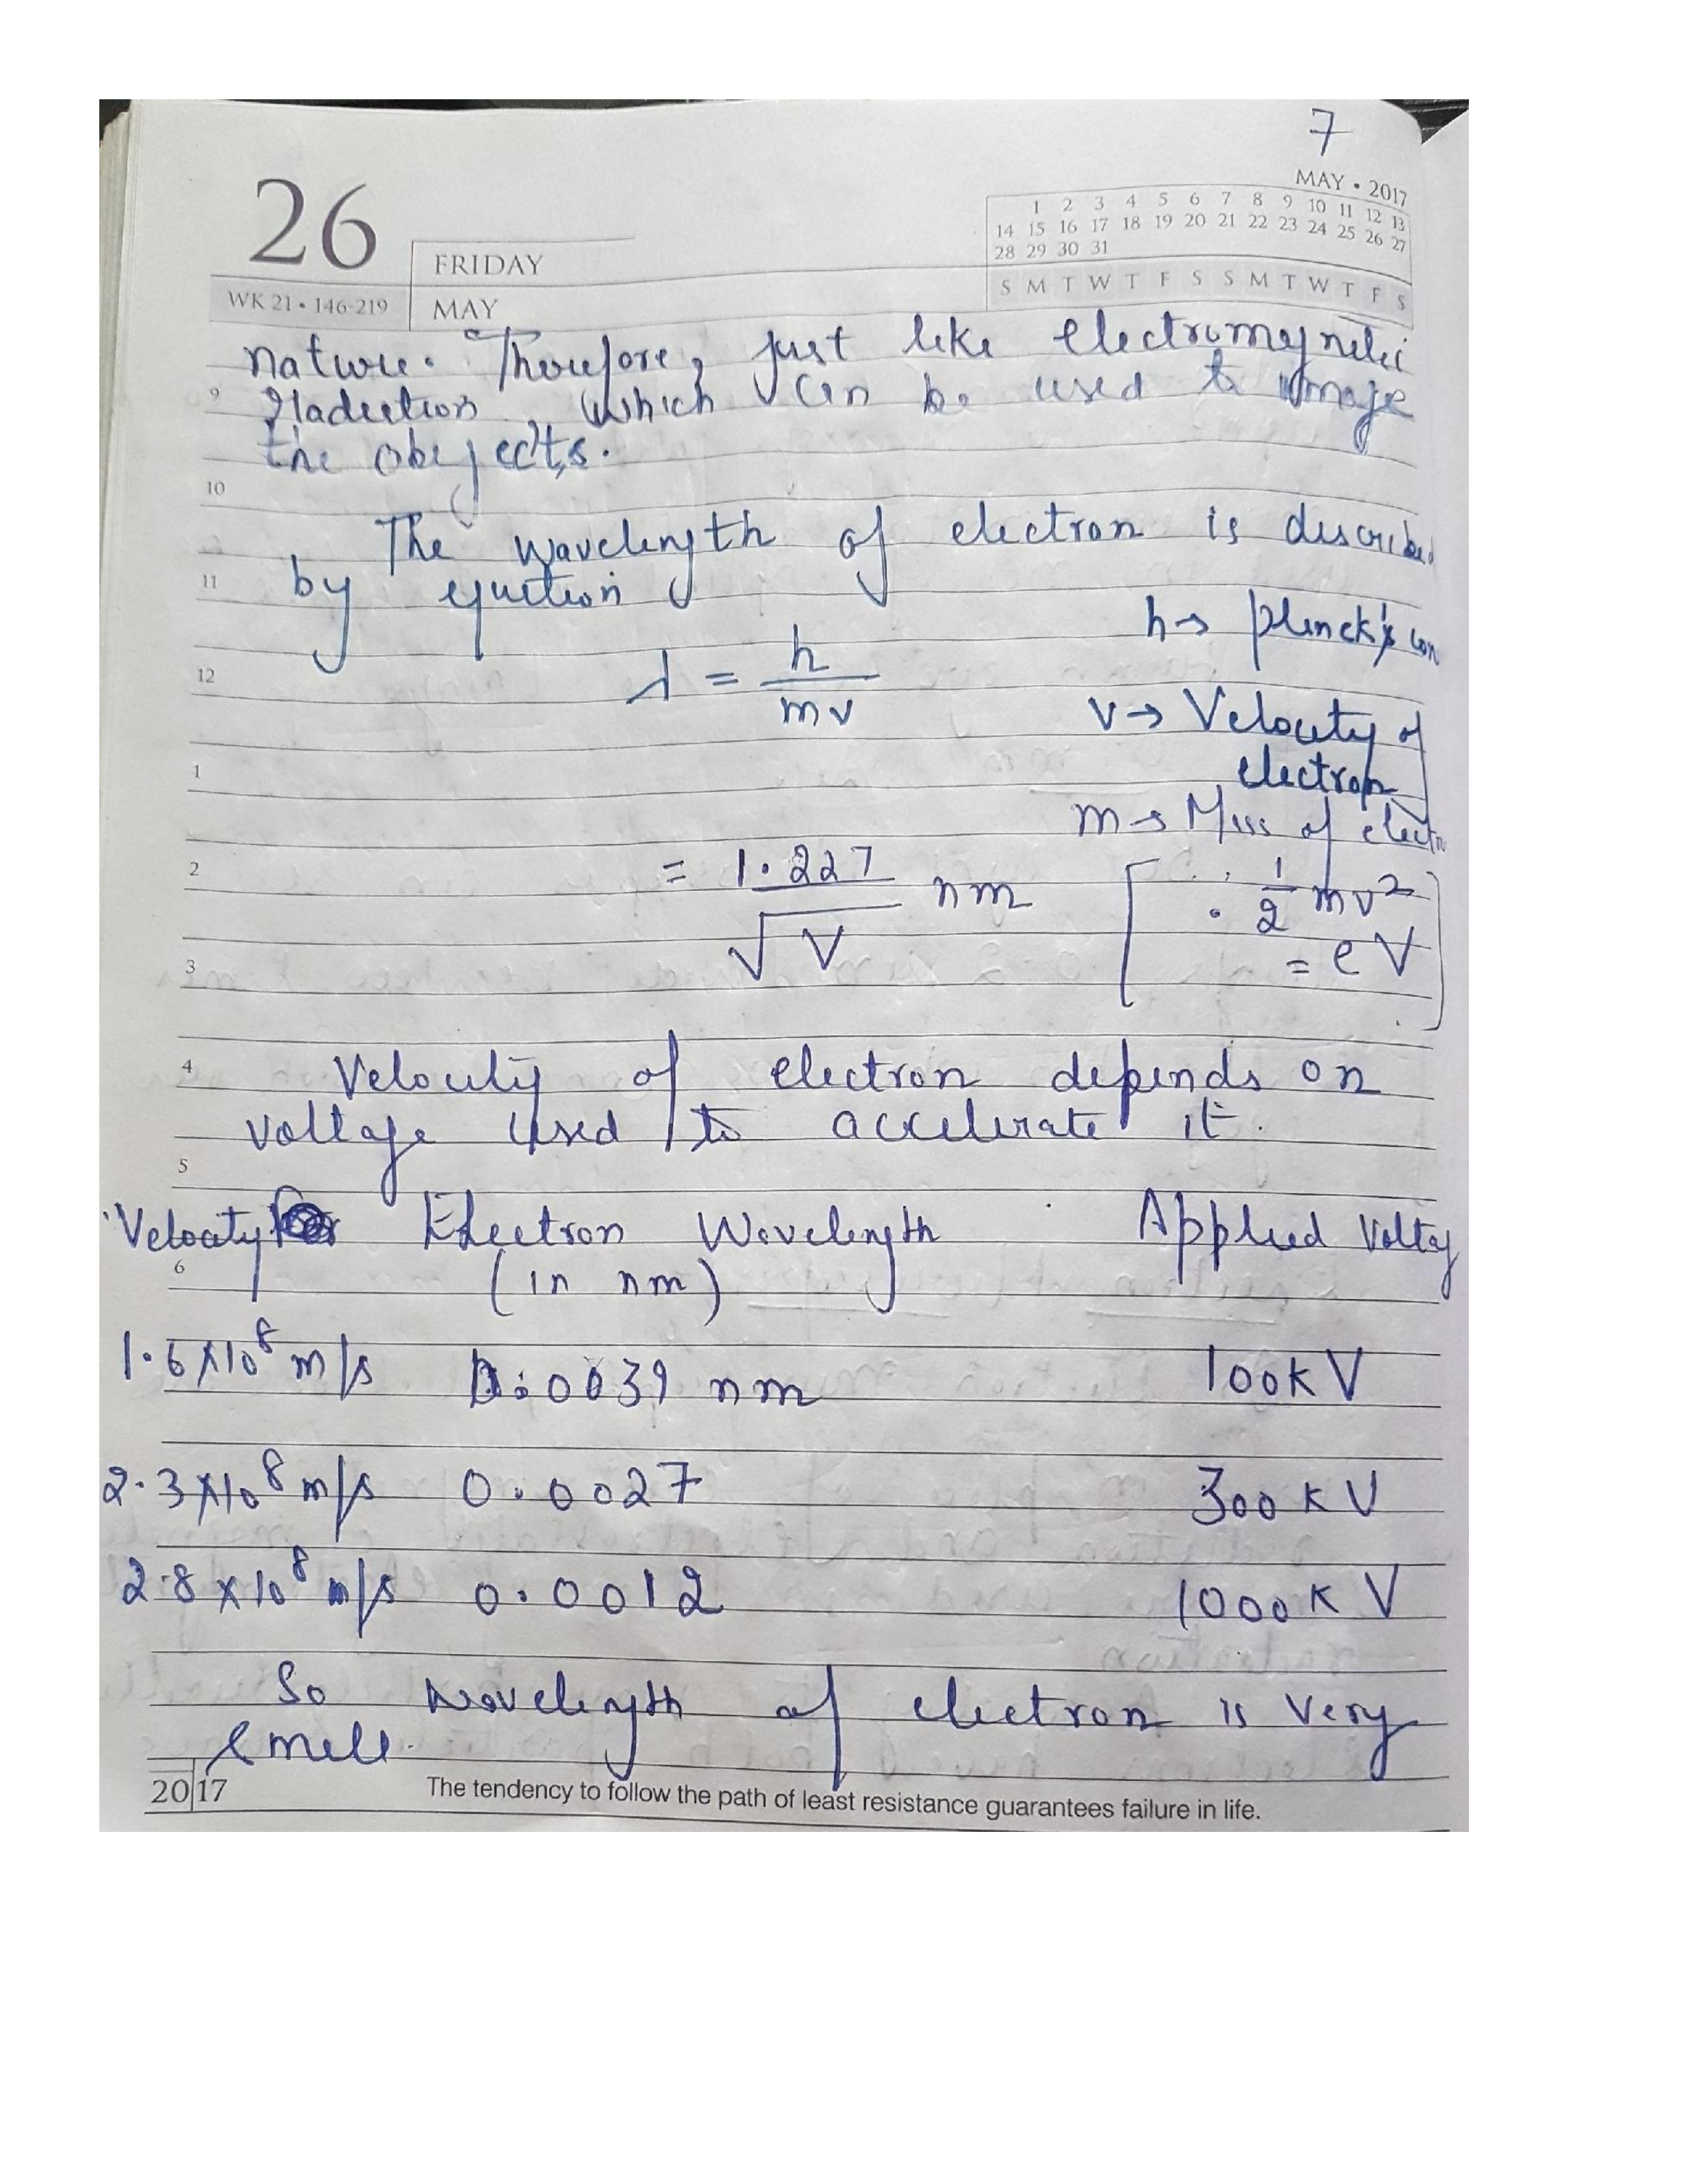 7
MAY • 2017
1 2 3 4 5 6 7 8 9 10 11 12 13
14 15 16 17 18 19 20 21 22 23 24 25 26 27
28 29 30 31
S M T W T F S S M T W T F S
26
FRIDAY
WK 21 • 146-219
MAY
nature. Therefore, just like electromagnetic
9
radiation, which can be used to image
the obejects.
10
The wavelength of electron is described
11
by equation
h → Planck's con
λ = h / mv
12
v → Velocity of
1
electron
m → Mass of electron
2
= 1.227 / √V nm
[ 1/2 mv²
= eV ]
3
4
Velocity of electron depends on
voltage used to accelerate it.
5
Velocity Electron Wavelength Applied Voltag
6
(in nm)
1.6×10⁸ m/s 0.0039 nm 100kV
2.3×10⁸ m/s 0.0027 300kV
2.8×10⁸ m/s 0.0012 1000kV
So wavelength of electron is very
small.
2017
The tendency to follow the path of least resistance guarantees failure in life.